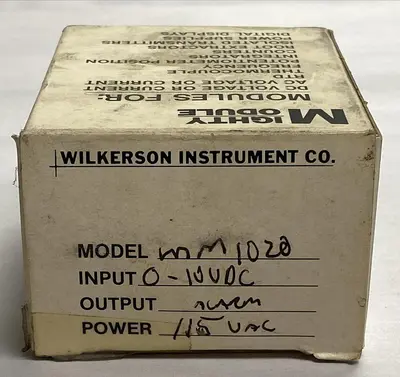 MIGHTY
MODULE
MODULES FOR:
DC VOLTAGE OR CURRENT
AC VOLTAGE OR CURRENT
RTD
THERMOCOUPLE
FREQUENCY
POTENTIOMETER POSITION
INTEGRATORS
SQUARE
ROOT EXTRACTORS
ISOLATED TRANSMITTERS
POWER SUPPLIES
DIGITAL DISPLAYS
WILKERSON INSTRUMENT CO.
MODEL MM1020
INPUT 0-10VDC
OUTPUT ALARM
POWER 115 VAC